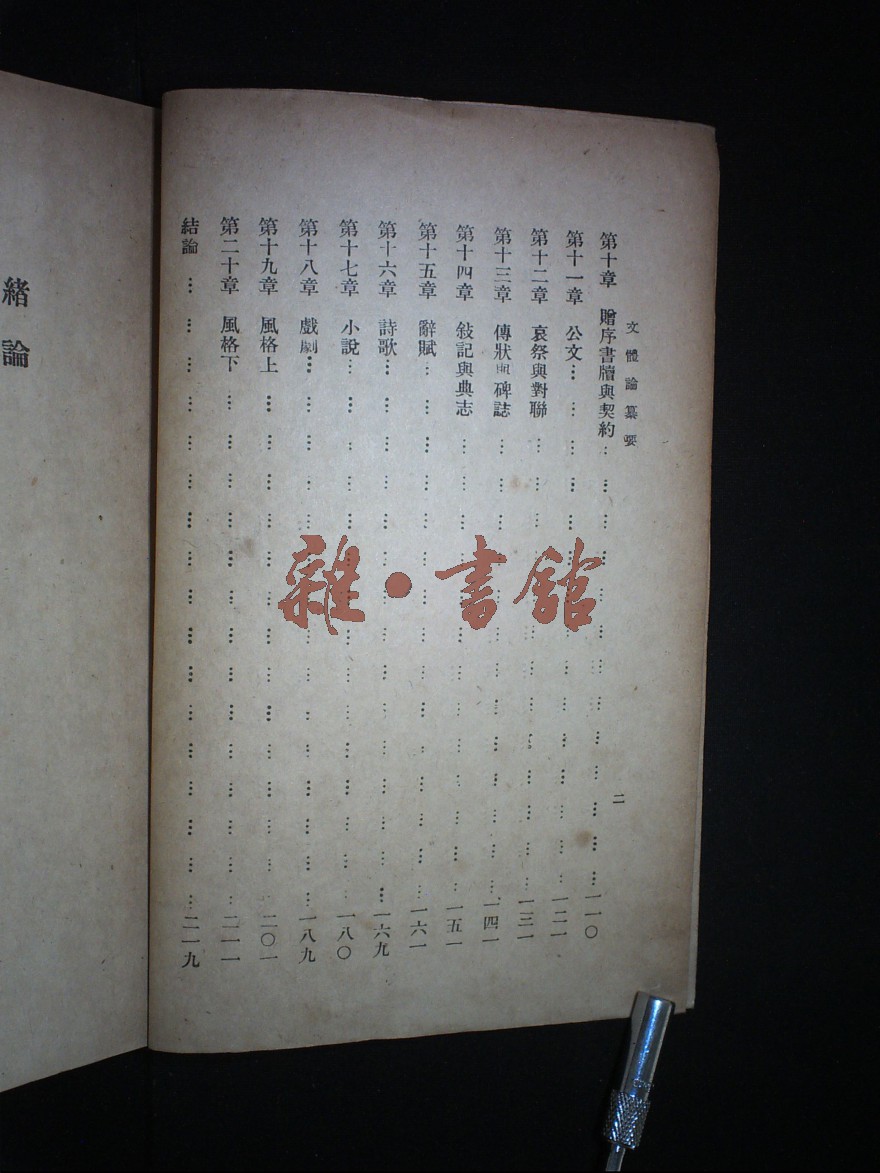 文體論纂要
二
第十章 贈序書牘與契約………一一〇
第十一章 公文………一二一
第十二章 哀祭與對聯………一三一
第十三章 傳狀與碑誌………一四一
第十四章 敍記與典志………一五一
第十五章 辭賦………一六一
第十六章 詩歌………一六九
第十七章 小說………一八〇
第十八章 戲劇………一八九
第十九章 風格上………二〇一
第二十章 風格下………二一一
結論………二一九
緒論
雜·書館